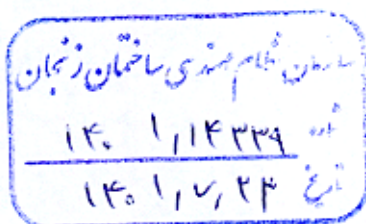 سازمان نظام مهندسی ساختمان زنجان
شماره ۱۴۰۱,۱۴۳۳۹
تاریخ ۱۴۰۱,۷,۲۴